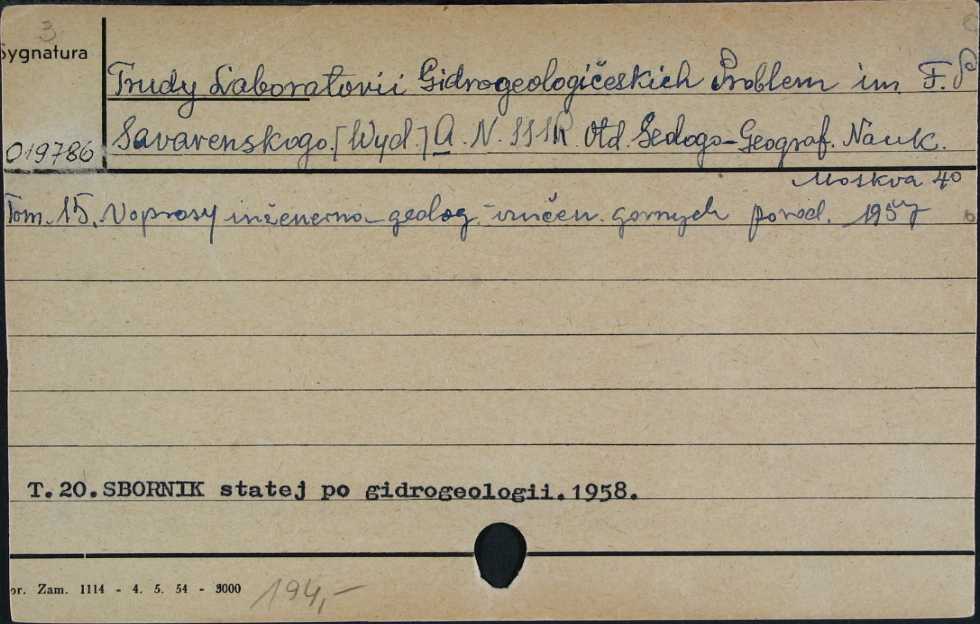 3
Sygnatura
Trudy Laboratorii Gidrogeologičeskich Problem im. F. P
019786 Savarenskogo. [Wyd.] A. N. SSSR. Otd. Geologo-Geograf. Nauk.
Moskva 4°
Tom. 15. Voprosy inženerno-geolog. izučen. gornych porod. 1957
T. 20. SBORNIK statej po gidrogeologii. 1958.
or. Zam. 1114 - 4. 5. 54 - 3000 194,-